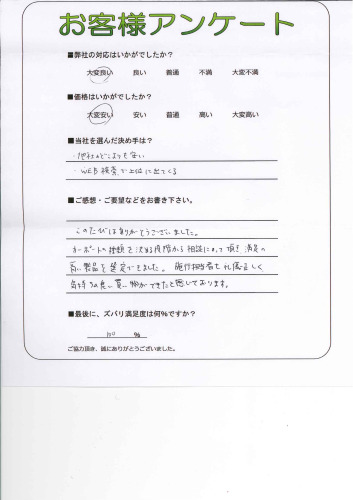 お客様アンケート
■弊社の対応はいかがでしたか？
大変良い 良い 普通 不満 大変不満
■価格はいかがでしたか？
大変安い 安い 普通 高い 大変高い
■当社を選んだ決め手は？
・他社のどこよりも安い
・WEB検索で上位に出てくる
■ご感想・ご要望などをお書き下さい。
このたびはありがとうございました。
カーポートの種類を決める段階から相談にのって頂き、満足の
高い製品を選定できました。施行担当者も礼儀正しく
気持ちの良い買い物ができたと感じております。
■最後に、ズバリ満足度は何％ですか？
100 ％
ご協力頂き、誠にありがとうございました。